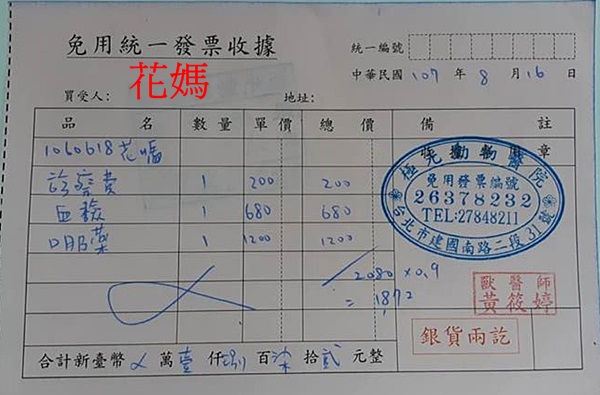 免用統一發票收據
統一編號
中華民國 107 年 8 月 16 日
買受人: 花媽 地址:
品名 數量 單價 總價 備註
1060618花媽
診察費 1 200 200
血檢 680 680
口服藥 1 1200 1200
2080 × 0.9
= 1872
極光動物醫院
免用發票編號
26378232
TEL:27848211
台北市建國南路二段31號
章
獸醫師
黃筱婷
銀貨兩訖
合計新臺幣 ㄨ 萬 壹 仟 捌 百 柒 拾 貳 元整